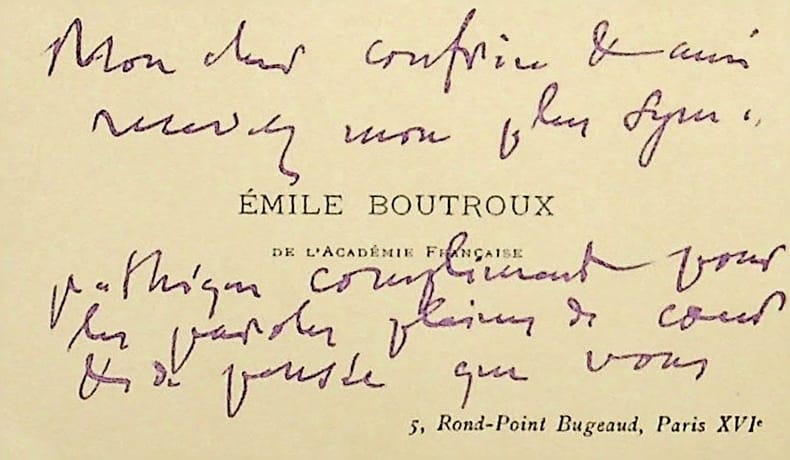 Mon cher confrère & ami
recevez mon plus sym-
ÉMILE BOUTROUX
DE L'ACADÉMIE FRANÇAISE
pathique compliment pour
les paroles pleines de cœur
& de pensée que vous
5, Rond-Point Bugeaud, Paris XVIe